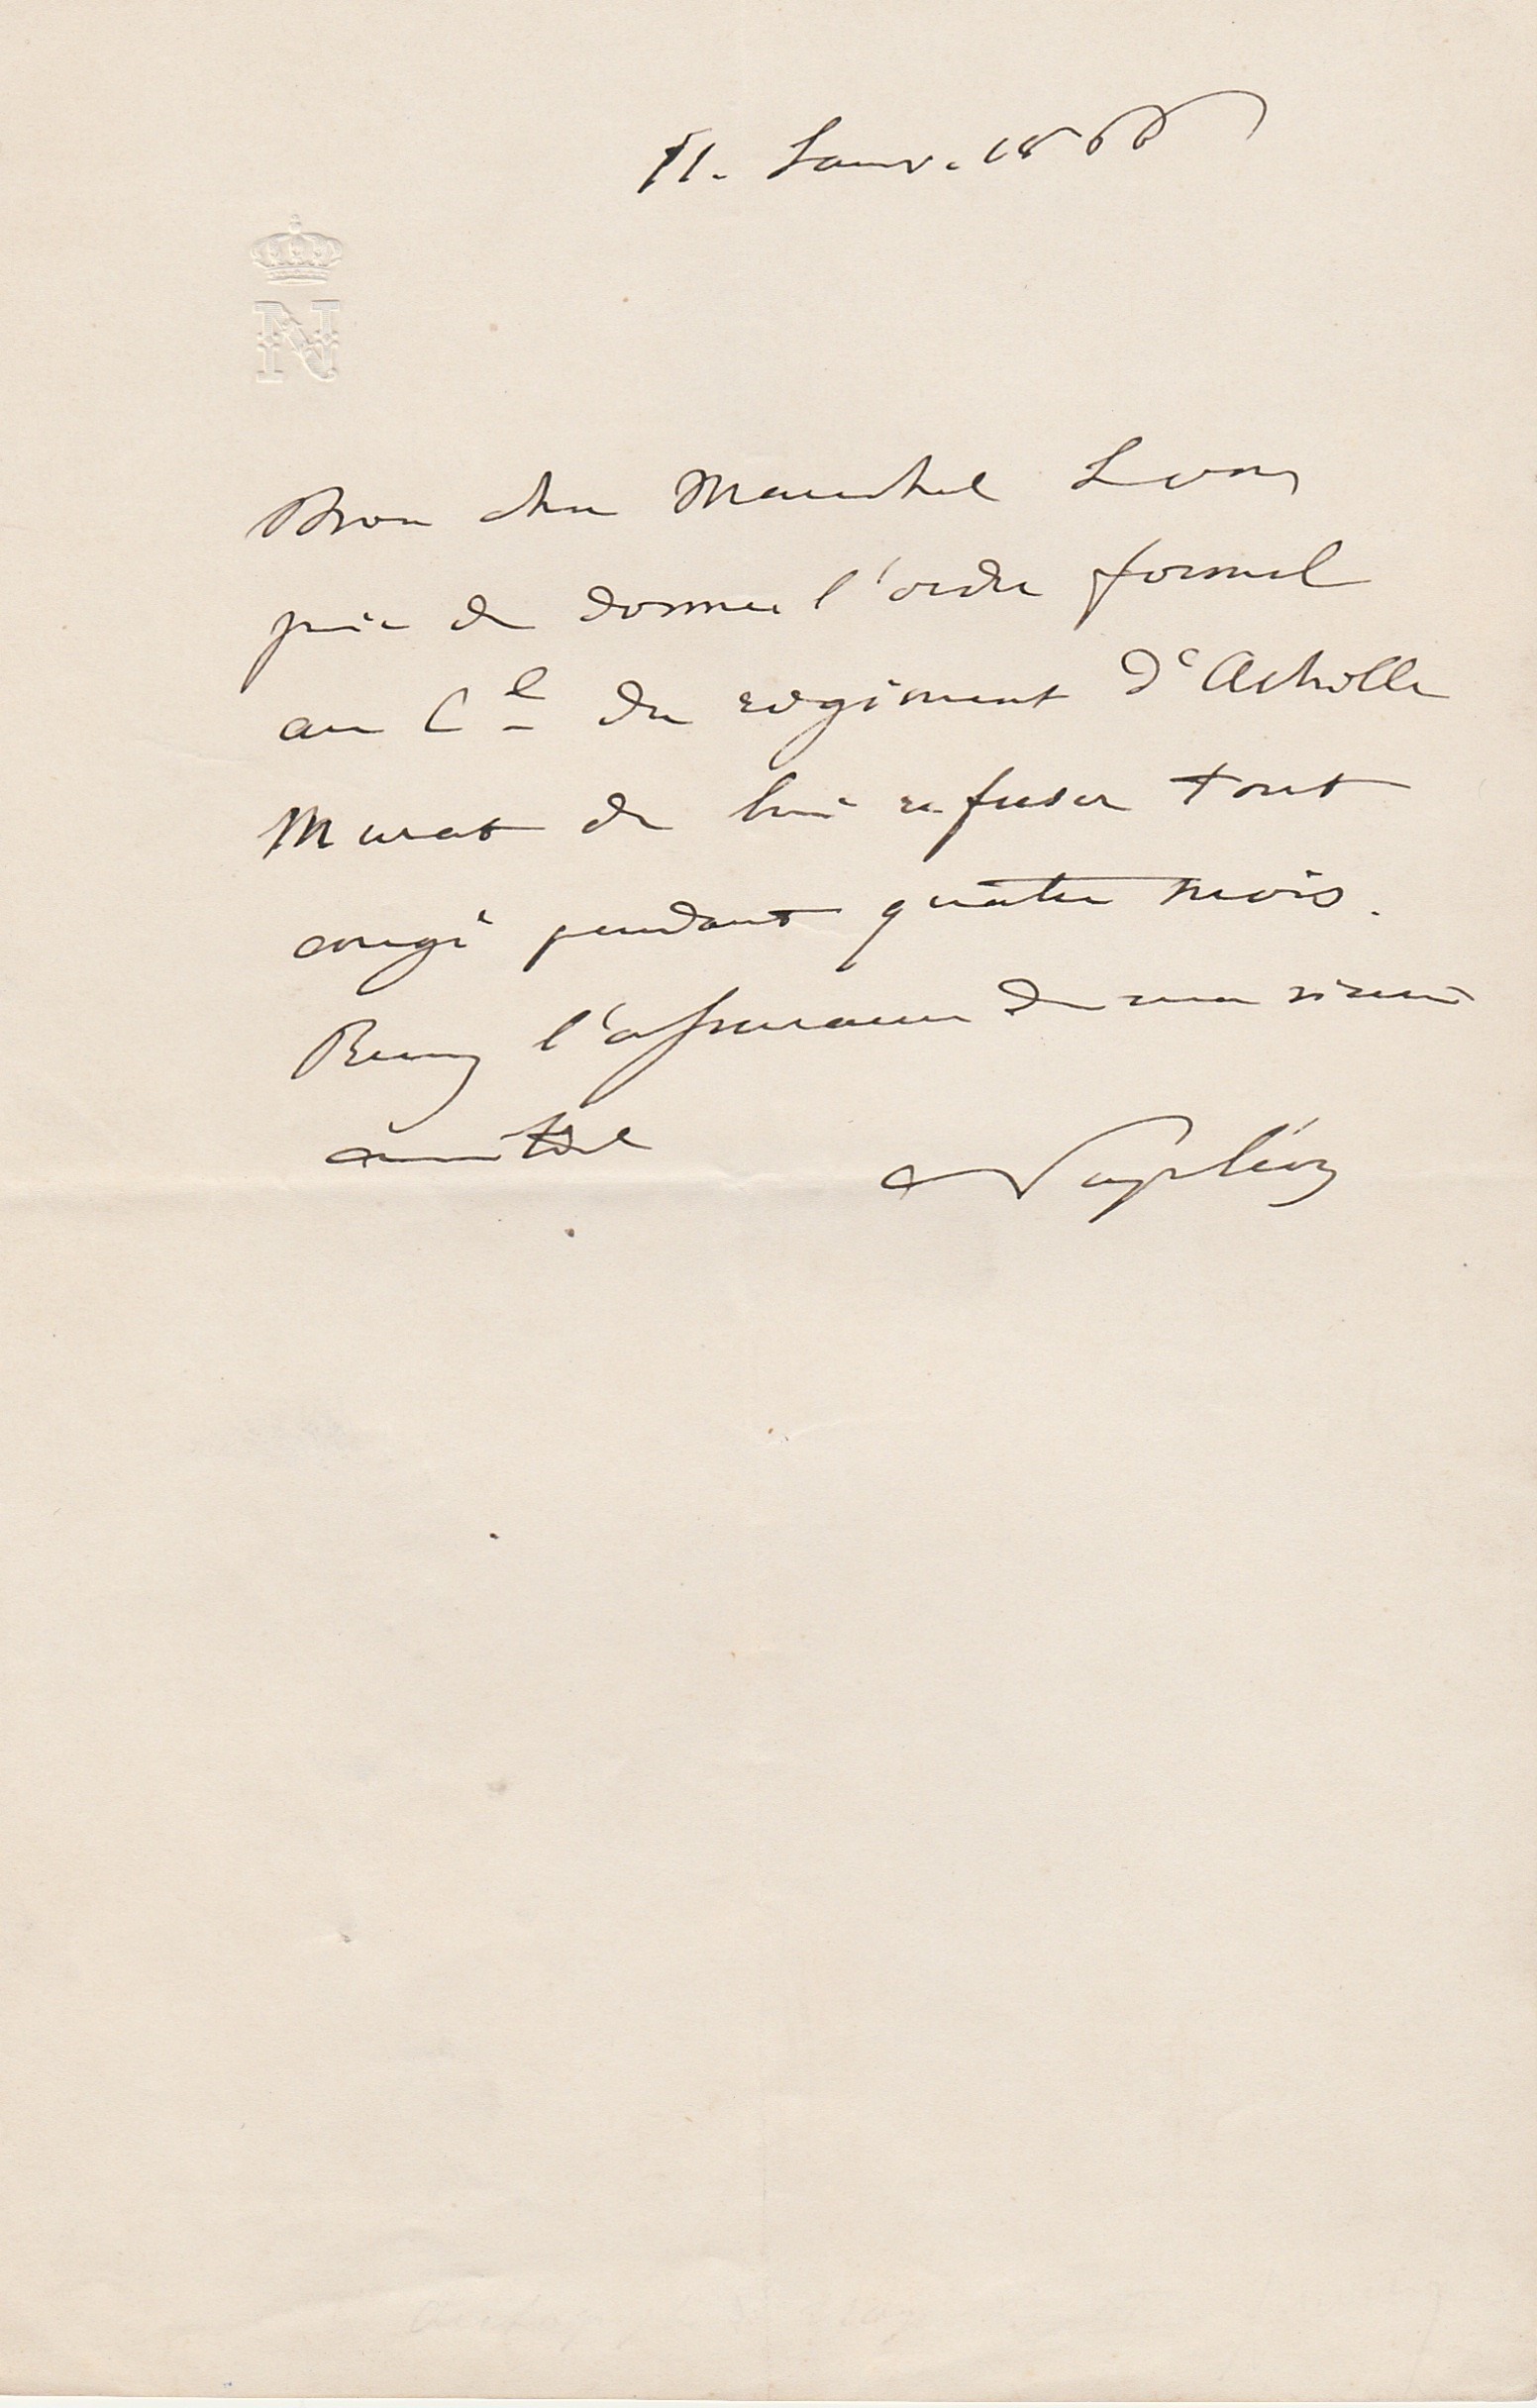 11. Janv. 1866
N
Mon cher Maréchal Je vous
prie de donner l'ordre formel
au Cel du régiment d'Achille
Murat de lui refuser tout
congé pendant quatre mois.
Recevez l'assurance de ma sincère
amitié
Napoléon